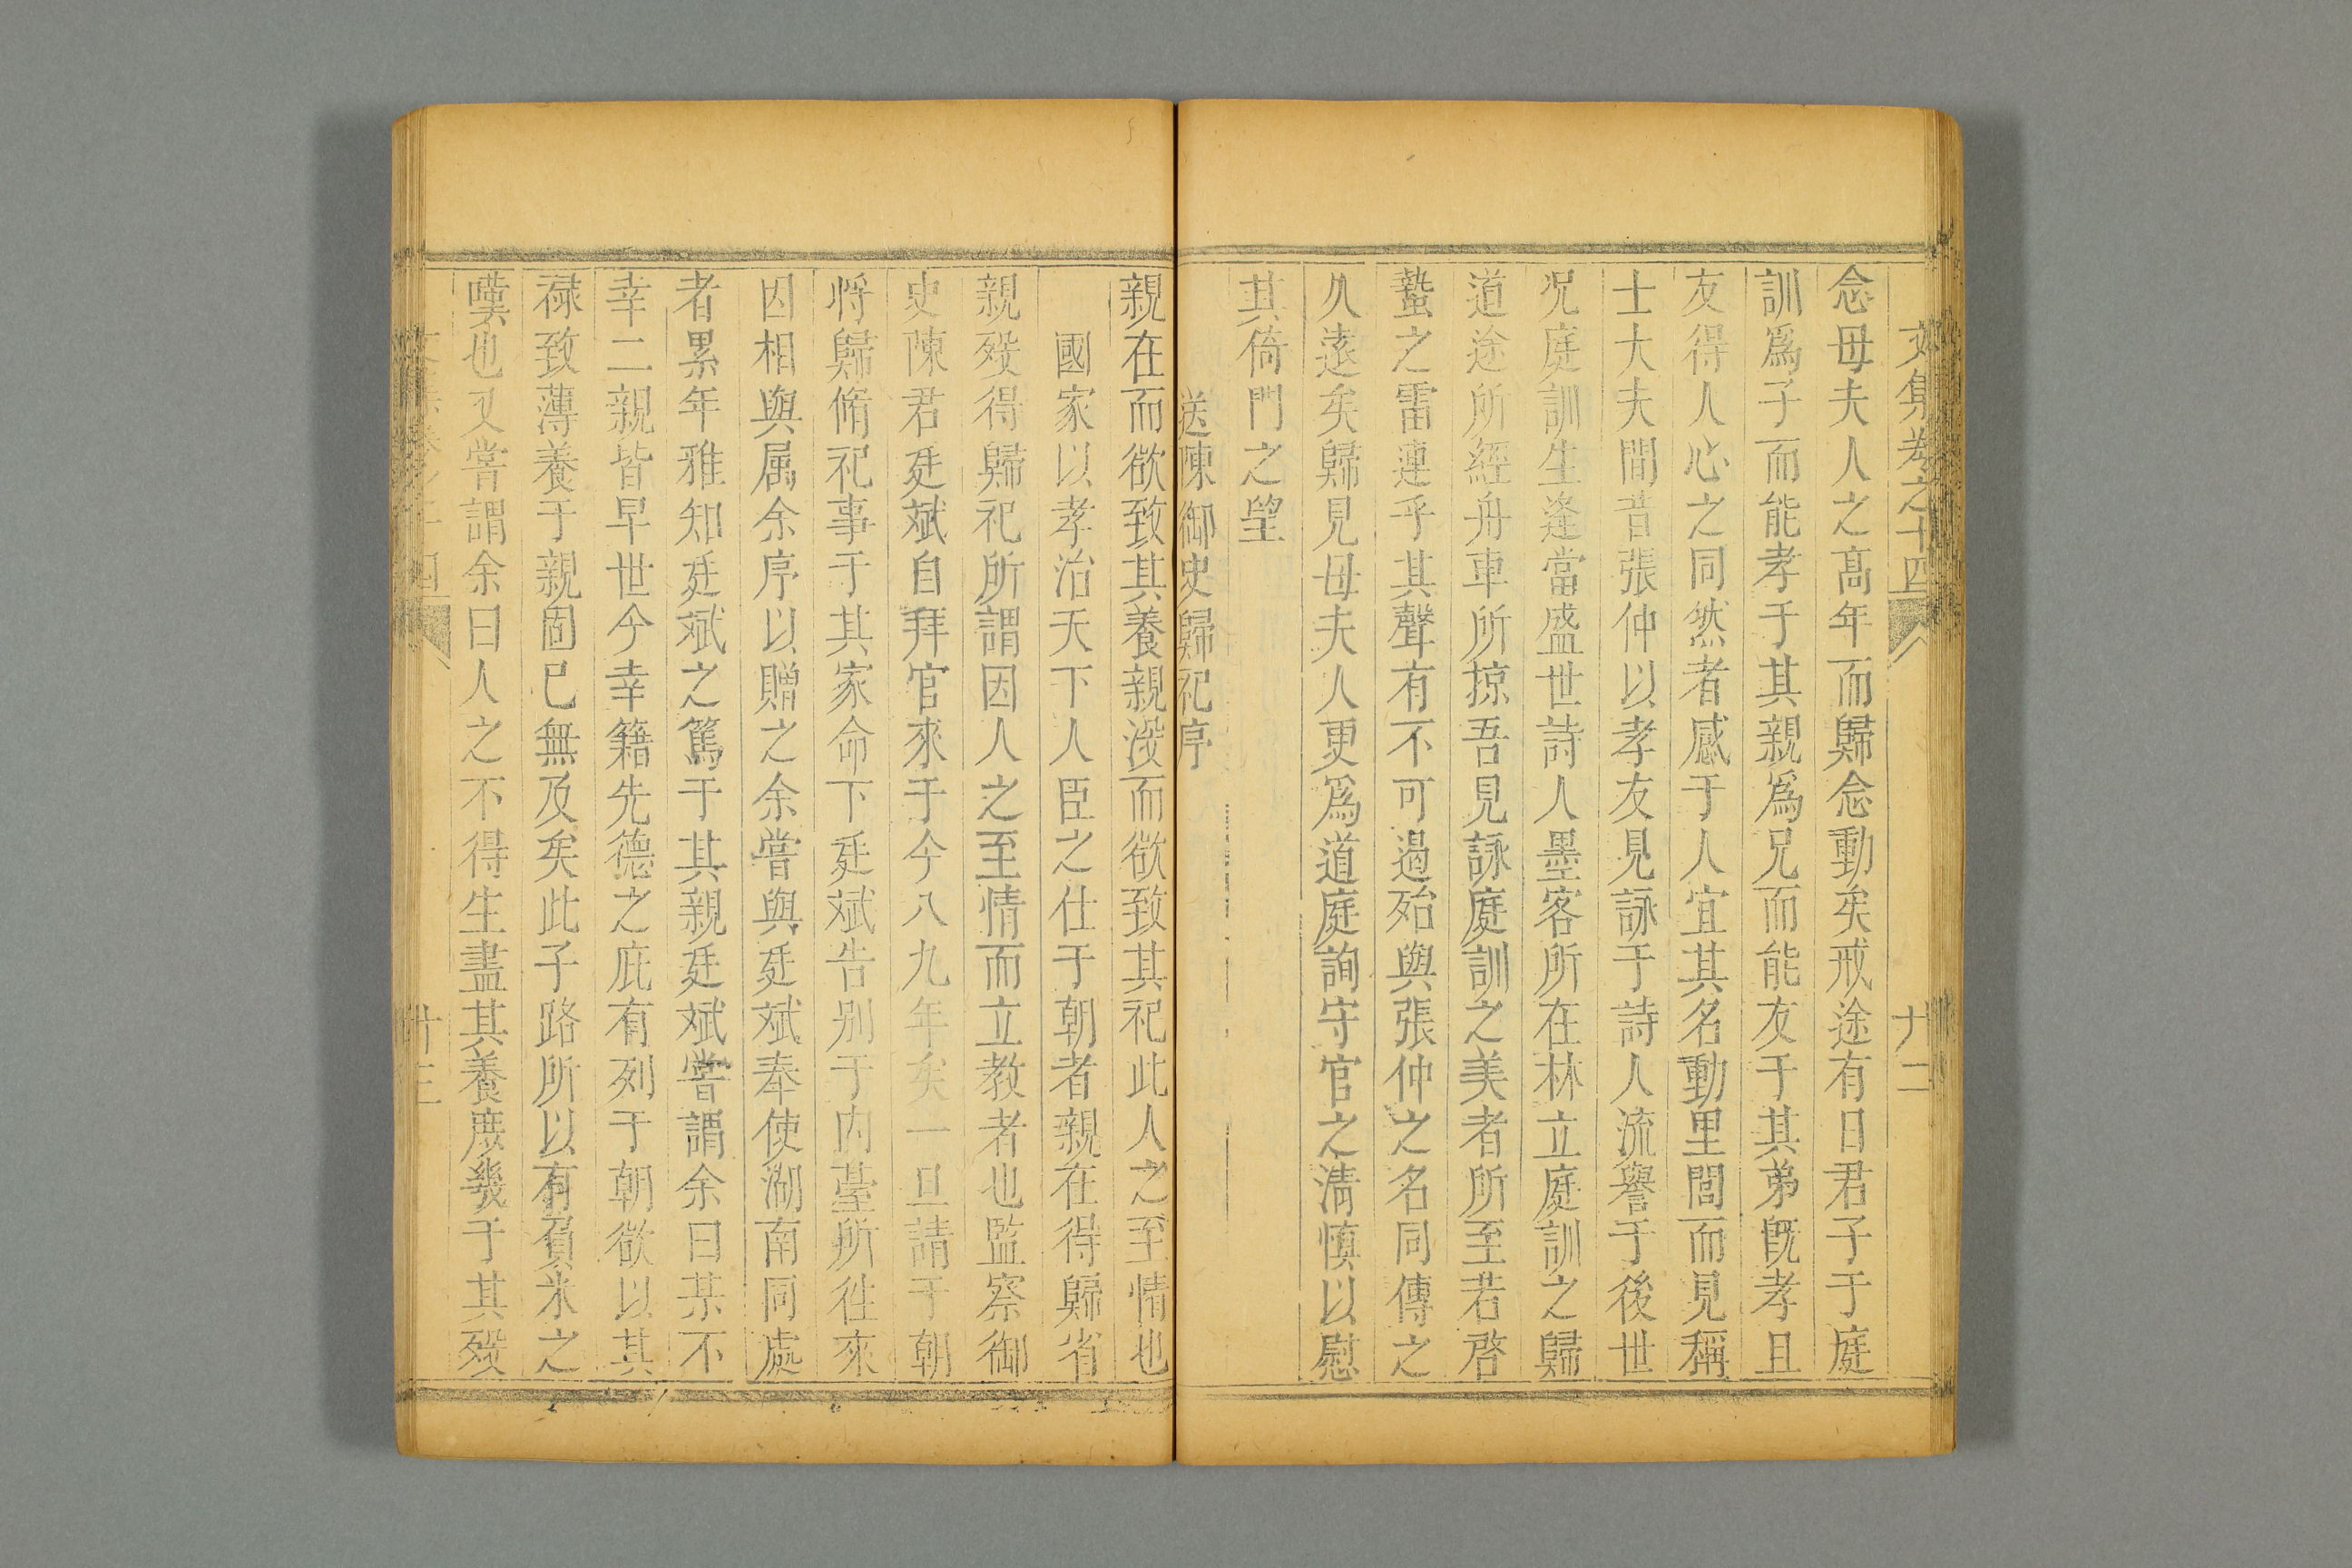 文集卷之十四 廿二
念母夫人之高年而歸念動矣戒途有日君子于庭
訓爲子而能孝于其親爲兄而能友于其弟旣孝且
友得人心之同然者感于人宜其名動里閭而見稱
士大夫間昔張仲以孝友見詠于詩人流譽于後世
况庭訓生逢當盛世詩人墨客所在林立庭訓之歸
道途所經舟車所掠吾見詠庭訓之美者所至若啓
蟄之雷連乎其聲有不可遏殆與張仲之名同傳之
久遠矣歸見母夫人更爲道庭詢守官之淸愼以慰
其倚門之望
送陳御史歸祀序
親在而欲致其養親歿而欲致其祀此人之至情也
國家以孝治天下人臣之仕于朝者親在得歸省
親歿得歸祀所謂因人之至情而立教者也監察御
史陳君廷斌自拜官來于今八九年矣一旦請于朝
將歸脩祀事于其家命下廷斌告别于内䑓所徃來
因相與属余序以贈之余嘗與廷斌奉使湖南同處
者累年雅知廷斌之篤于其親廷斌嘗謂余曰某不
幸二親皆早世今幸籍先德之庇有列于朝欲以其
祿致薄養于親固已無及矣此子路所以有負米之
嘆也又嘗謂余曰人之不得生盡其養庶幾于其歿
廿三